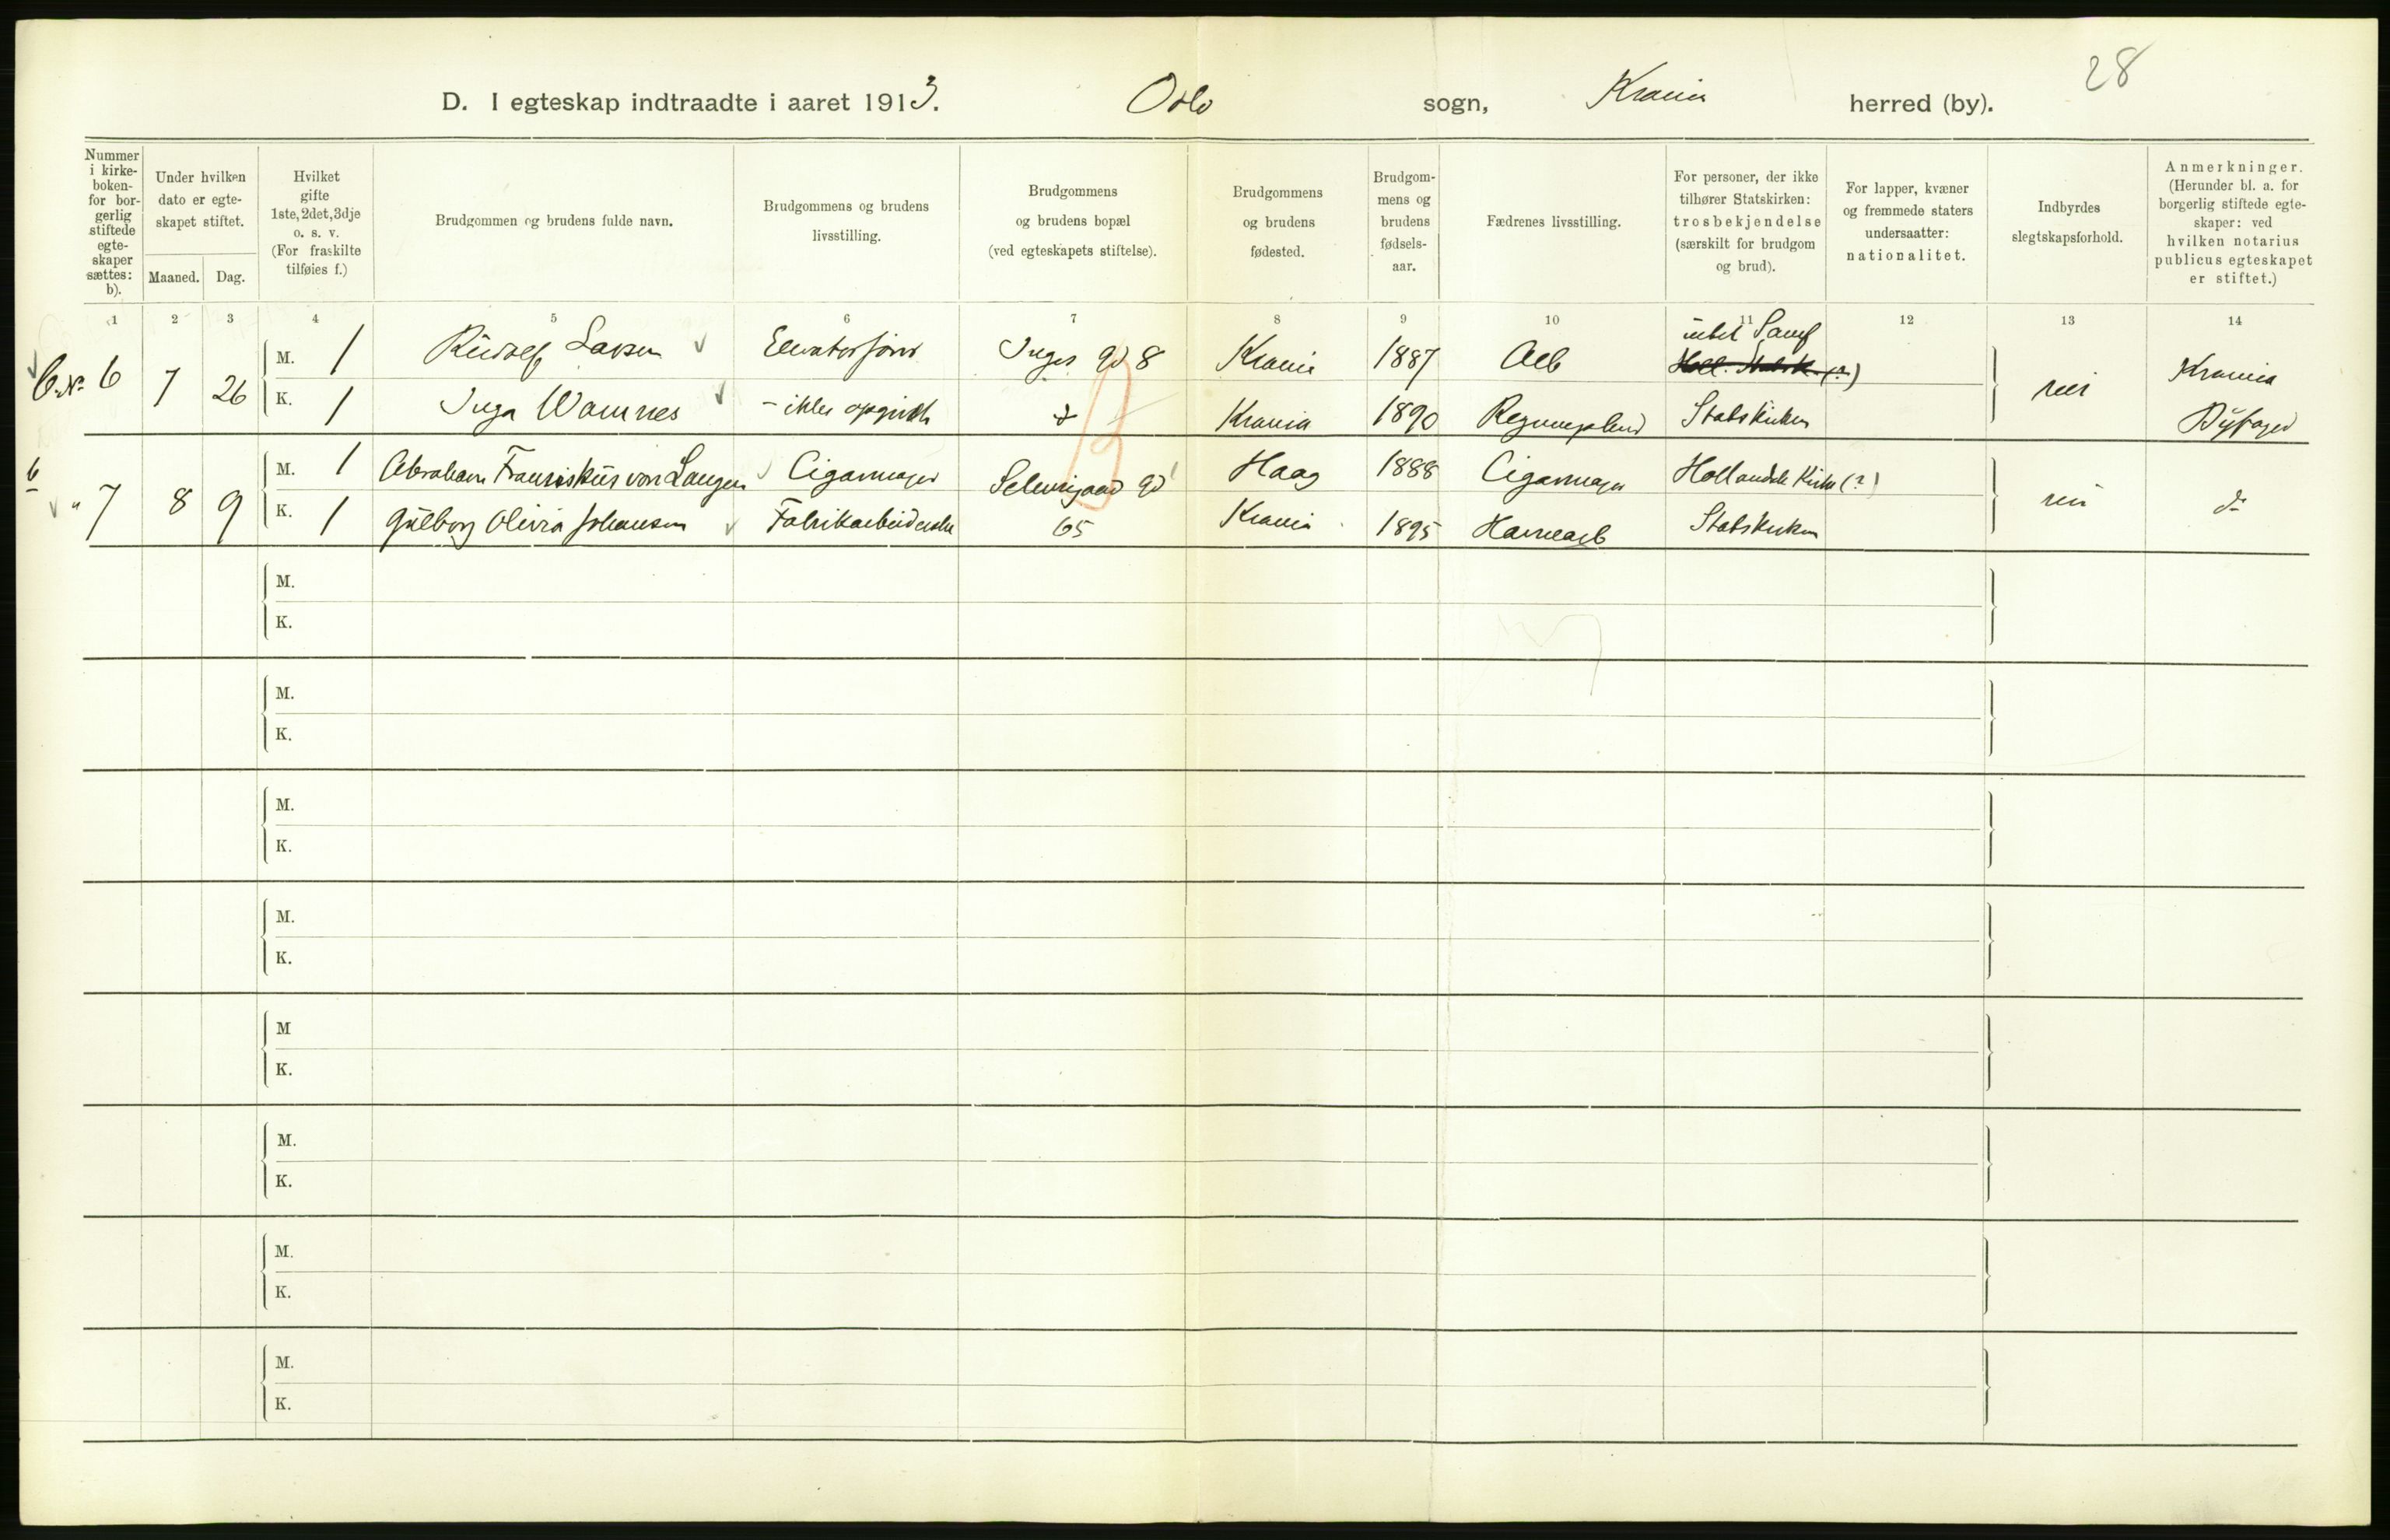 28
D. I egteskap indtraadte i aaret 1913. Oslo sogn, Krania herred (by).
Nummer i kirke-boken- for bor-gerlig stiftede egte-skaper sættes: b).
Under hvilken dato er egte-skapet stiftet.
Maaned. Dag.
Hvilket gifte 1ste, 2det, 3dje o. s. v. (For fraskilte tilføies f.)
Brudgommen og brudens fulde navn.
Brudgommens og brudens livsstilling.
Brudgommens og brudens bopæl (ved egteskapets stiftelse).
Brudgommens og brudens fødested.
Brudgom-mens og brudens fødsels-aar.
Fædrenes livsstilling.
For personer, der ikke tilhører Statskirken: trosbekjendelse (særskilt for brudgom og brud).
For lapper, kvæner og fremmede staters undersaatter: nationalitet.
Indbyrdes slegtskapsforhold.
Anmerkninger. (Herunder bl. a. for borgerlig stiftede egte-skaper: ved hvilken notarius publicus egteskapet er stiftet.)
1 2 3 4 5 6 7 8 9 10 11 12 13 14
b. N. 6 7 26 M. 1 Rudolf Larsen Elevatorfører Inges gd 8 Krania 1887 Arb intet Samf nei Krania
K. 1 Inga Wamnes - ikke opgivet Krania 1890 Statskirken Byfoged
b " 7 8 9 M. 1 Abraham Fransiskus von Langen Cigarmager gd Haag 1888 Cigarmager Hollandsk Kirke (?) nei do
K. 1 Gulborg Olivia Johansen Fabrikarbeiderske 65 Krania 1895 Havnearb Statskirken
M.
K.
M.
K.
M.
K.
M.
K.
M
K.
M.
K.
M.
K.
M.
K.